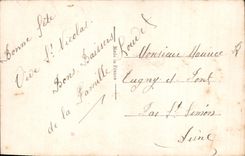 Bonne Fête
Vive St Nicolas
Bons Baisers
de la Famille
Louis
Made in France
Monsieur Maurice
Cugny et Pont
Par St Simon
Aisne